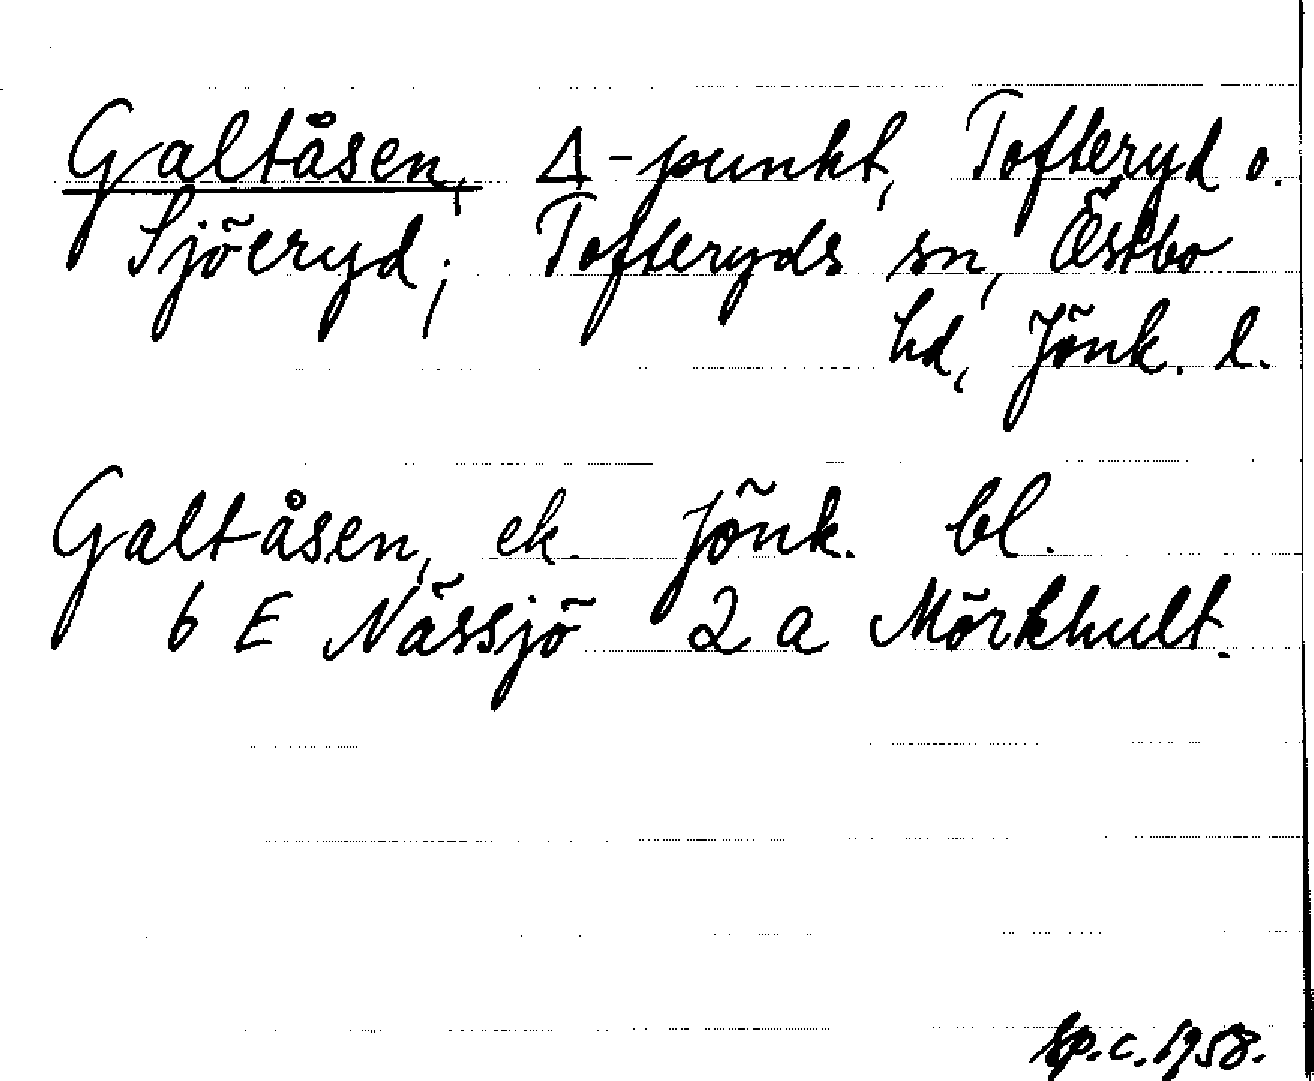 Galtåsen, Δ-punkt, Tofteryd o.
Sjöeryd; Tofteryds sn, Östbo
hd, Jönk. l.
Galtåsen, ek. Jönk. bl.
6 E Nässjö 2 a Mörkhult.
c. 1958.